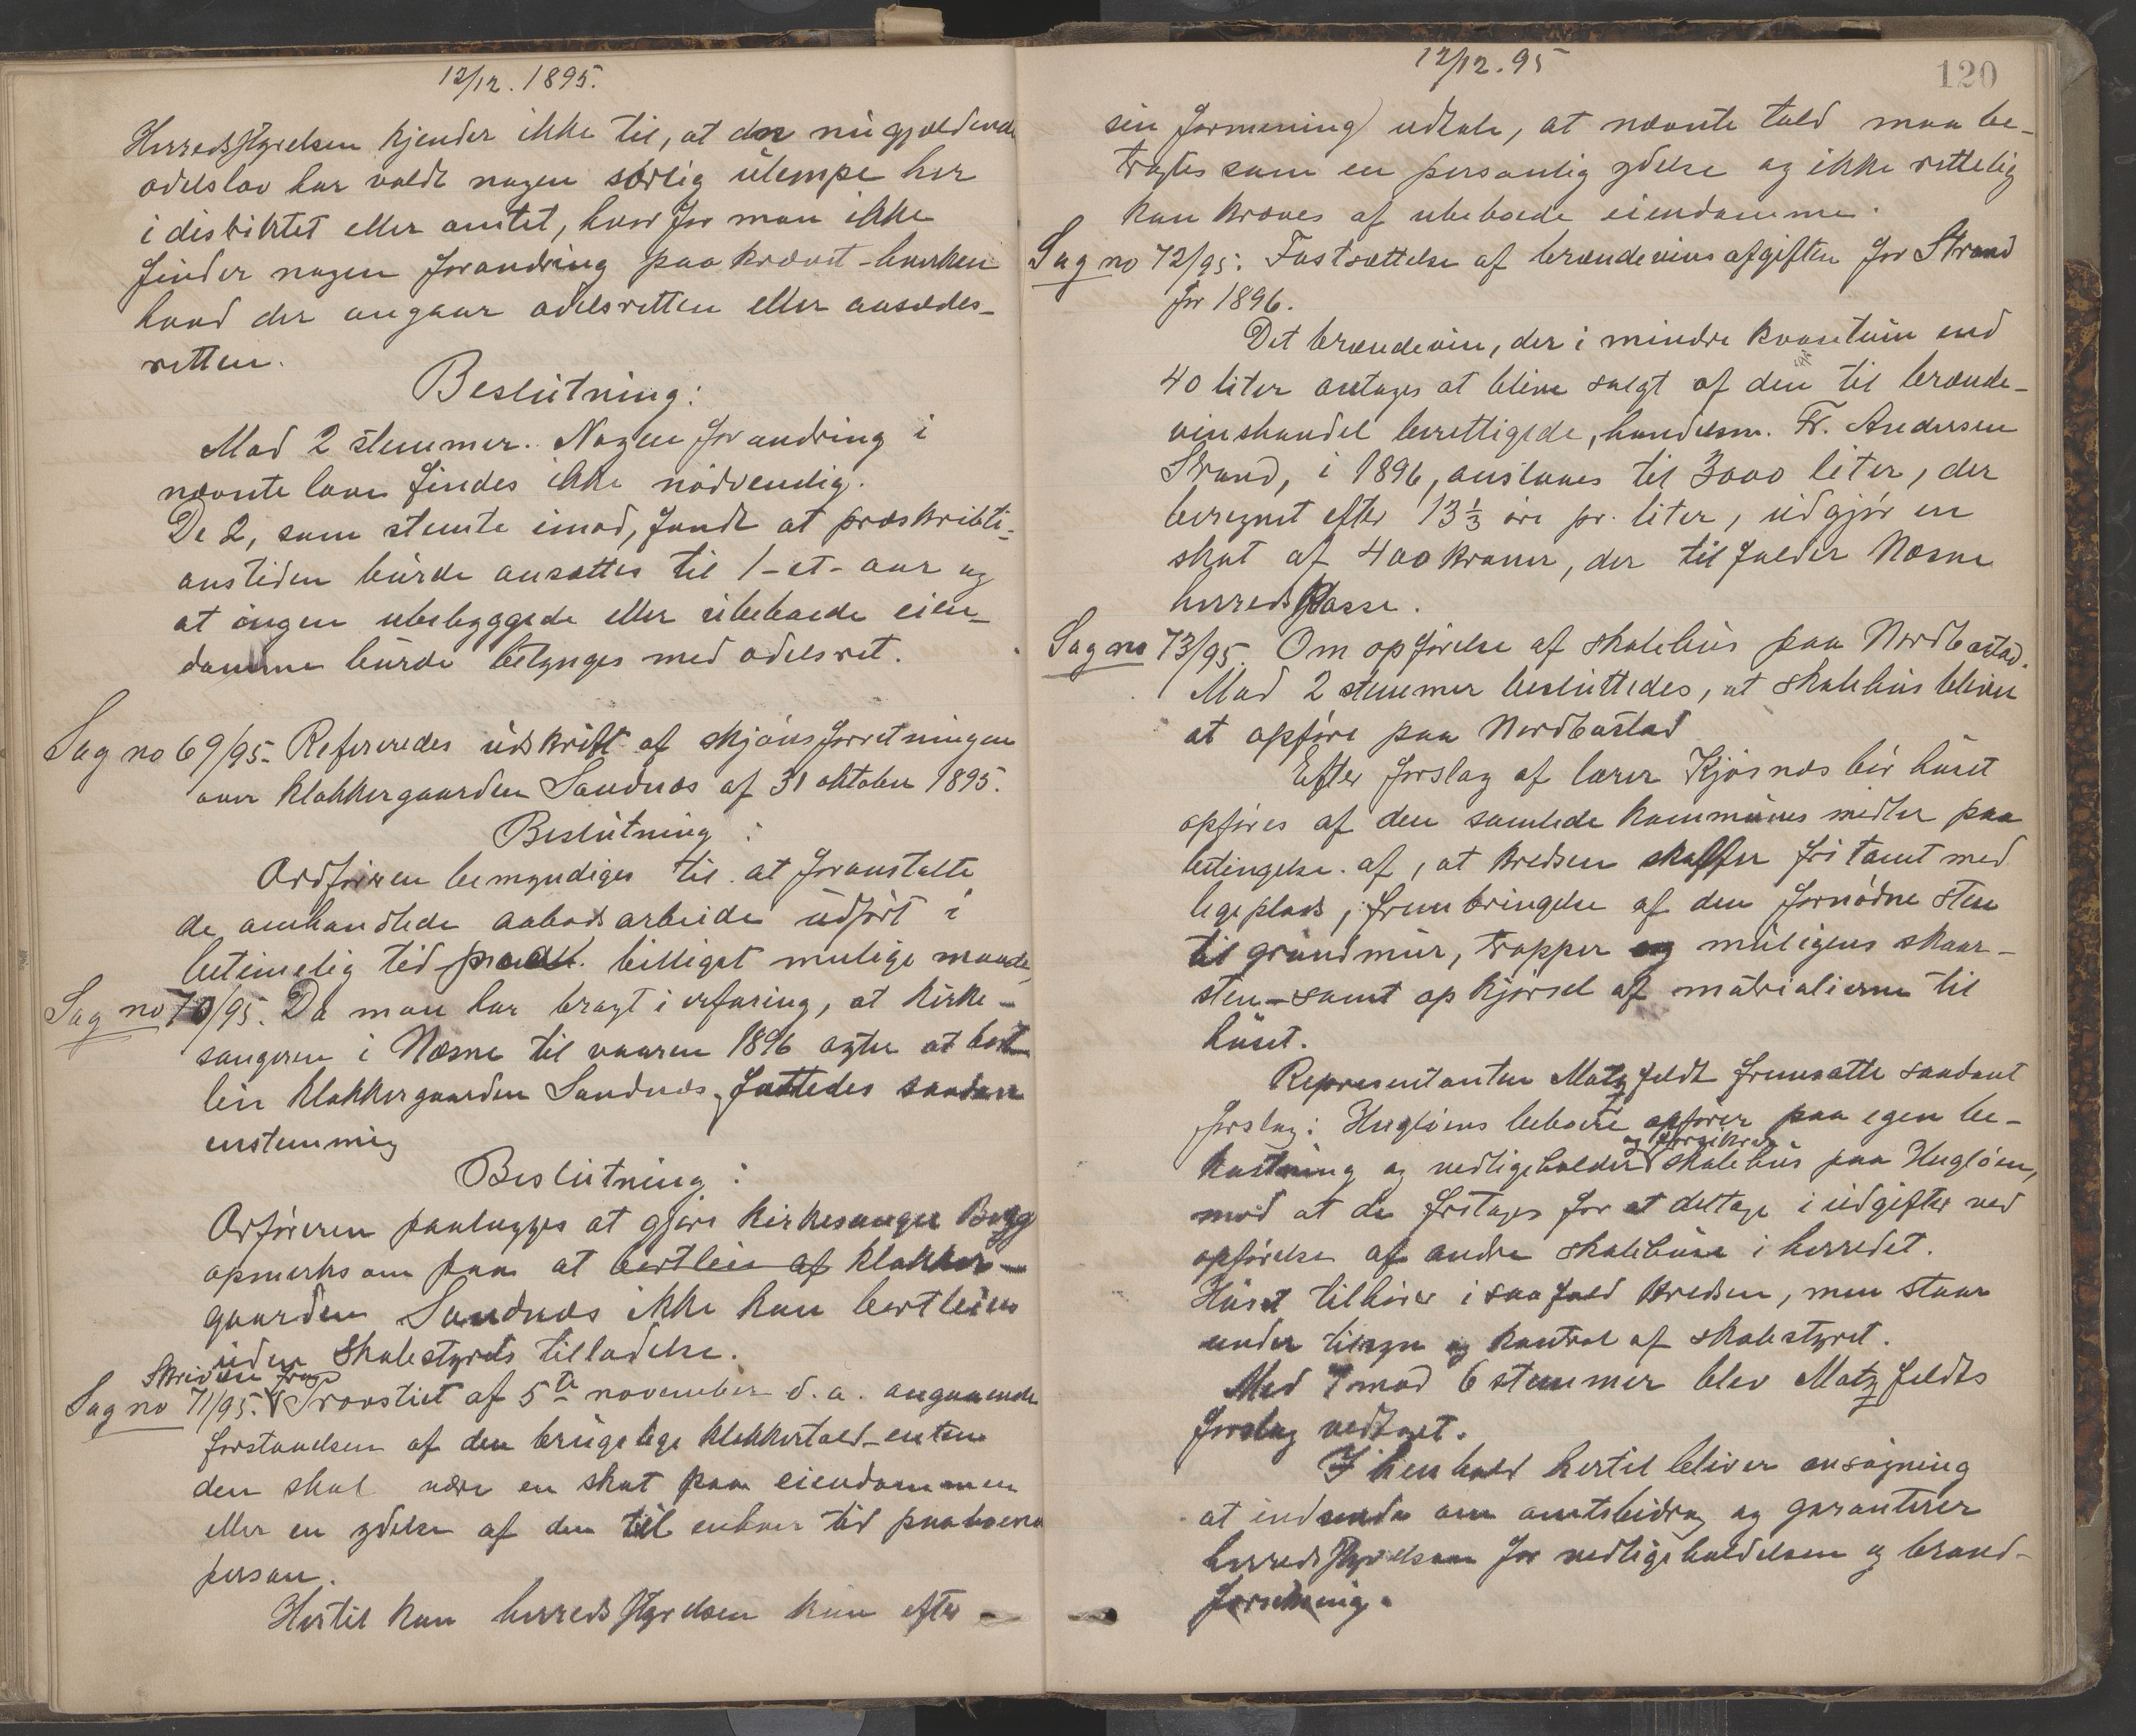 12/12. 1895.
Herredsstyrelsen kjender ikke til, at den nugjældende
odelslov har voldt nogen særlig ulempe her
i distriktet eller amtet, hvorfor man ikke
finder nogen forandring paakrævet - hverken
hvad der angaar odelsretten eller aasædes-
retten.
Beslutning:
Mod 2 stemmer. Nogen forandring i
nævnte love findes ikke nødvendig.
De 2, som stemte imod, fandt at præskribti-
onstiden burde ansættes til 1 - et - aar og
at ingen ubebyggede eller ubeboede eien-
domme burde betynges med odelsret.
Sag no 69/95. Refereredes udskrift af skjønsforretningen
over klokkergaarden Sandnæs af 31 oktober 1895.
Beslutning:
Ordføreren bemyndiges til at foranstalte
de omhandlede aabodsarbeide udført i
betimelig tid paa billigst mulige maade,
Sag no 70/95. Da man har bragt i erfaring, at kirke-
sangeren i Næsne til vaaren 1896 agter at bort-
leie klokkergaarden Sandnæs, fattedes saadan
enstemmig
Beslutning:
Orføreren paalægges at gjøre kirkesanger Bugge
opmerksom paa at bortleie af klokker-
gaarden Sandnæs ikke kan bortleies
uden Skolestyrets tilladelse.
Skrivelse fra
Sag no 71/95. Provstiet af 5te november d. a. angaaende
forstaaelsen af den brugelige klokkertold - enten
den skal være en skat paa eiendommen
eller en ydelse af den til enhver tid paaboende
person.
Hertil kan herredsstyrelsen kun efter
12/12. 95
120
sin formening) udtale, at nævnte told maa be-
tragtes som en personlig ydelse og ikke rettelig
kan kræves af ubeboede eiendomme.
Sag no 72/95. Fastsættelse af brændevinsafgiften for Strand
for 1896.
Det brændevin, der i mindre kvantum end
40 liter antages at blive solgt af den til brænde-
vinshandel berettigede, handelsm. Fr. Andersen
Strand, i 1896, anslaaes til 3000 liter, der
beregnet efter 13 1/3 øre pr. liter, udgjør en
skat af 400 kroner, der tilfalder Næsne
herredskasse.
Sag no 73/95. Om opførelse af skolehus paa Nordbostad.
Mod 2 stemmer besluttedes, at skolehus bliver
at opføre paa Nordbostad
Efter forslag af lærer Kjøsnæs bør huset
opføres af den samlede kommunes midler paa
betingelse af, at kredsen skaffer fri tomt med
legeplads, frembringelse af den fornødne sten
til grundmur, trapper og muligens skaar-
sten - samt opkjørsel af matrialierne til
huset.
Representanten Motzfeldt fremsatte saadant
forslag: Hugløens beboere opfører paa egen be-
og forsikrer
kostning og vedligeholder skolehus paa Hugløen,
mod at de fritages for at deltage i udgifter ved
opførelse af andre skolehuse i herredet.
Huset tilhører i saafald kredsen, men staar
under tilsyn og kontrol af skolestyret.
Med 7 mod 6 stemmer blev Motzfeldts
forslag vedtaget.
I henhold hertil bliver ansøgning
at indsende om amtsbidrag og garanterer
herredsstyrelsen for vedligeholdelsen og brand-
forsikring.